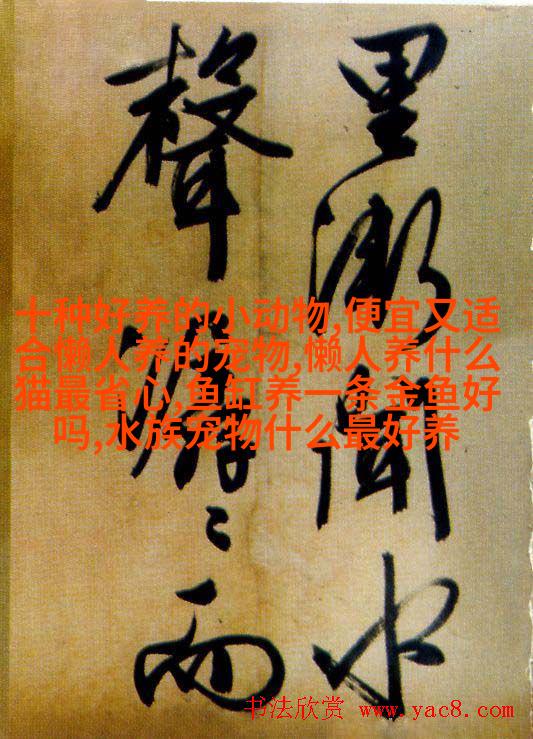 里漸聞水
聲潺〻而
十种好养的小动物,便宜又适
合懒人养的宠物,懒人养什么
猫最省心,鱼缸养一条金鱼好
吗,水族宠物什么最好养
书法欣赏 www.yac8.com